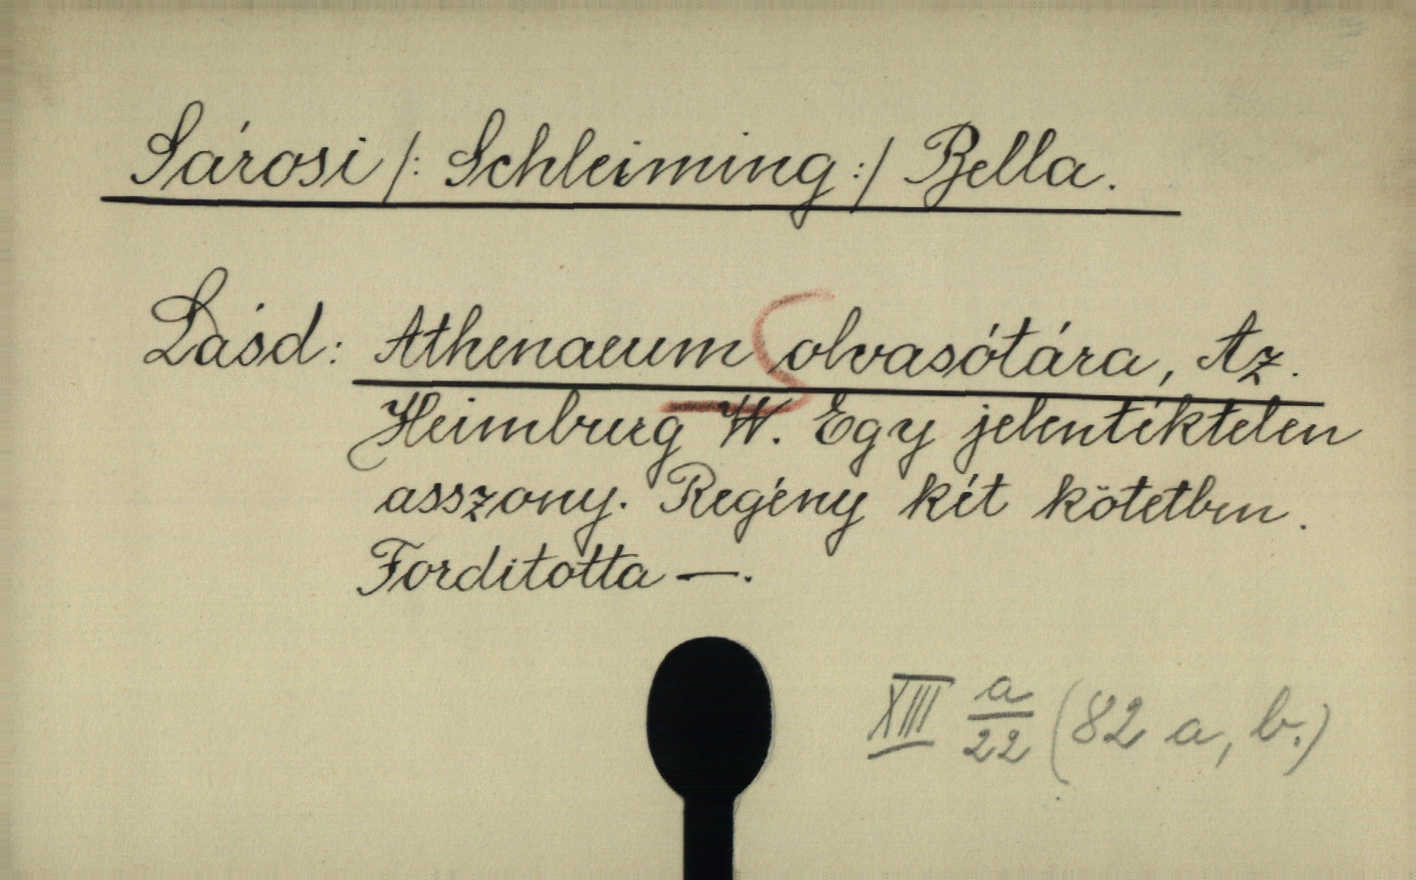 Sárosi /: Schleiming :/ Bella.
Lásd: Athenaeum olvasótára, Az.
Heimburg W. Egy jelentéktelen
asszony. Regény két kötetben.
Forditotta —.
XIII a/22 (82 a, b.)